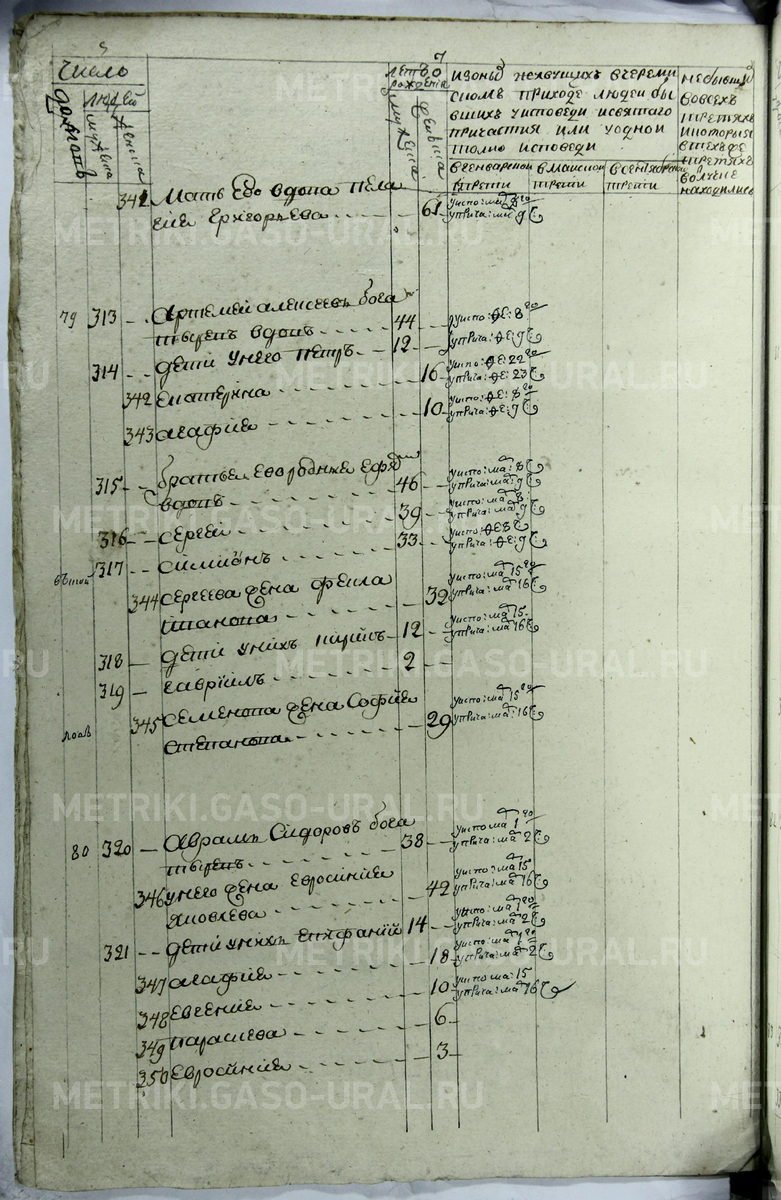 Число
домовъ
людей
мужска
женска
летъ о
рождения
мужска
женска
изоныхъ живущихъ вчереми
сномъ приходе людей бы
вшихъ уисповеди исвятаго
причастия или уодной
толко исповеди
вгенварской трети
вмайской трети
трети
небывших
вовсехъ
третяхъ
икоторыя
втехъ де
третяхъ
находились
341 Мать Ево вдова пела
гия Григорьева 61 уиспо: ма 8
уприча: ма 9
79 313 Артемей алексеевъ бога
тыревъ вдовъ 44 уиспо: ѳе: 8
уприча: ѳе: 9
314 дети унего петръ 12 уиспо: ѳе: 22
уприча: ѳе: 23
342 екатерина 16 уиспо: ѳе: 8
уприча: ѳе: 9
343 агафия 10
315 братья ево родныя
вдовъ 46 уиспо: ма: 8
уприча: ма: 9
316 сергей 39 уиспо: ма 8
уприча: ма 9
317 симионъ 33 уиспо: ѳе 8
уприча: ѳе: 9
344 сергеева жена феила
32 уиспо: ма 15
уприча: ма 16
318 дети унихъ 12 уиспо: ма 15
уприча: ма 16
319 гавриилъ 2
345 семенова жена София
степанова 29 уиспо: ма 15
уприча: ма: 16
80 320 Аврамъ Сидоровъ бога
тыревъ 38 уиспо ма 1
уприча: ма 2
346 унего жена Евросиния
яковлева 42 уиспо: ма 15
уприча: ма 16
321 дети унихъ епифаний 14 уиспо: ма 1
уприча: ма 2
347 агафия 18 уиспо: ма 1
уприча: ма 2
348 евгения 10 уиспо ма: 15
уприча: ма 16
349 парасиева 6
350 евросиния 3
METRIKI.GASO-URAL.RU